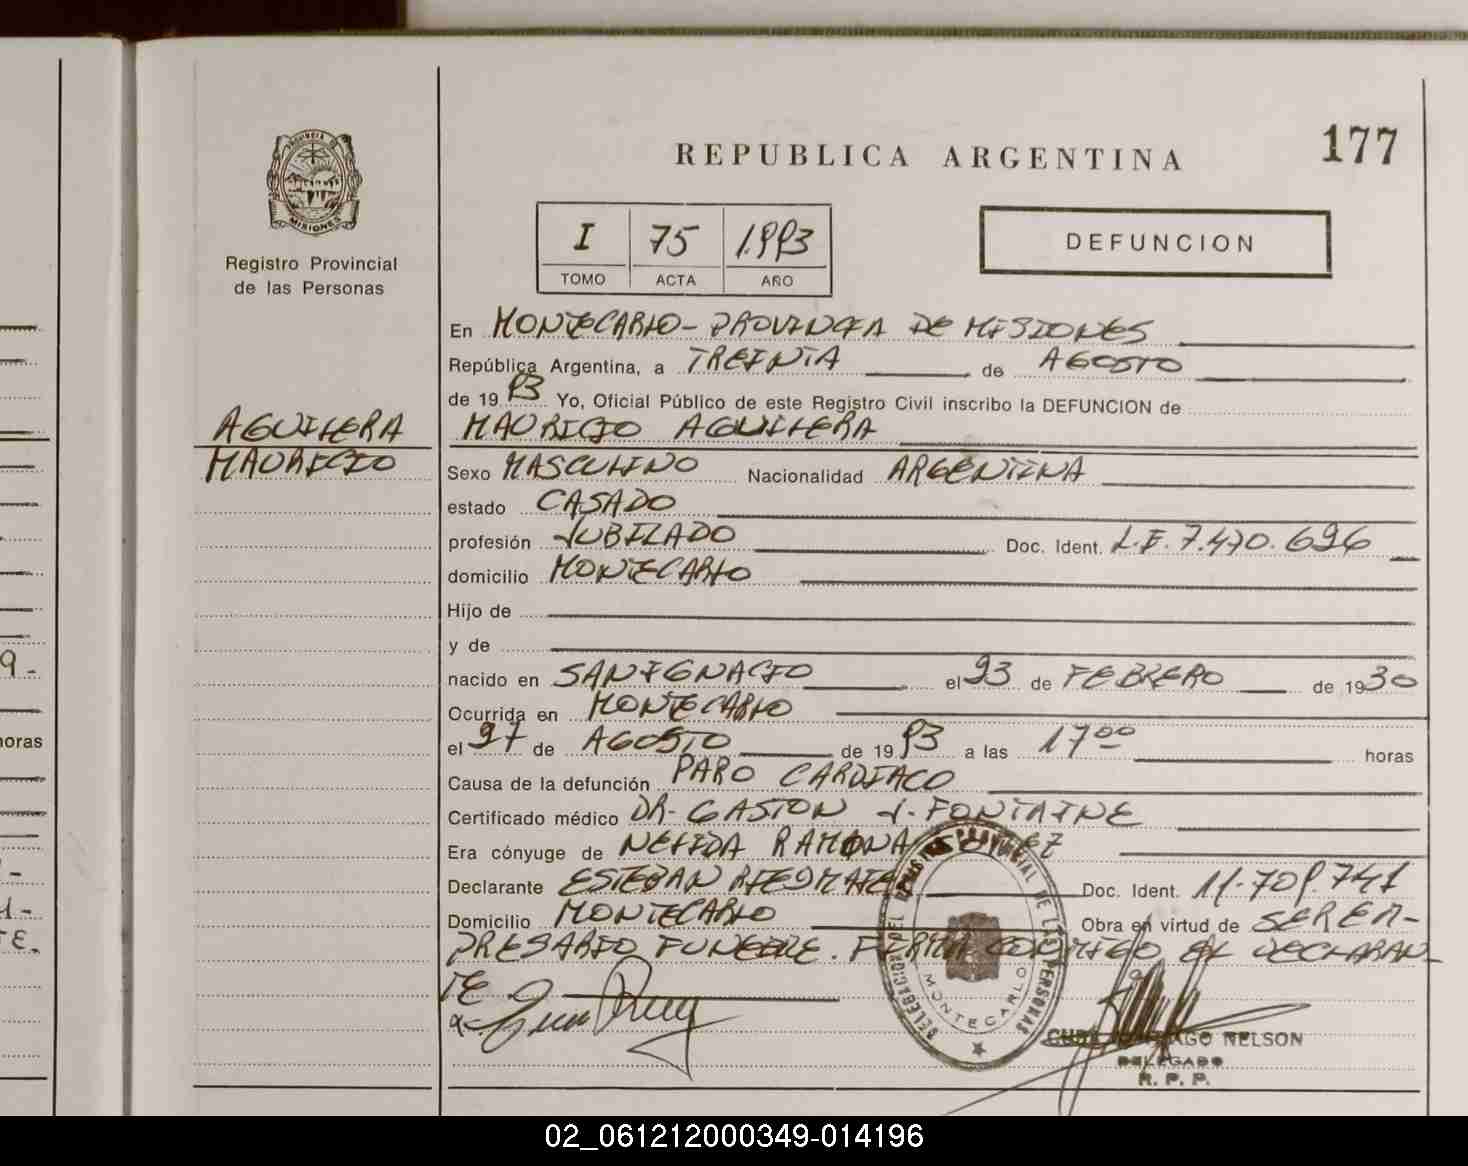 177
REPUBLICA ARGENTINA
PROVINCIA DE
MISIONES
Registro Provincial
de las Personas
I 75 1.993
TOMO ACTA AÑO
DEFUNCION
En MONTECARLO - PROVINCIA DE MISIONES
República Argentina, a TREINTA de AGOSTO
de 19 93 Yo, Oficial Público de este Registro Civil inscribo la DEFUNCION de
AGUILERA
MAURICIO
MAURICIO AGUILERA
Sexo MASCULINO Nacionalidad ARGENTINA
estado CASADO
profesión JUBILADO Doc. Ident. L.E. 7.470.696
domicilio MONTECARLO
Hijo de
y de
nacido en SAN IGNACIO el 23 de FEBRERO de 1930
Ocurrida en MONTECARLO
el 27 de AGOSTO de 19 93 a las 17 00 horas
Causa de la defunción PARO CARDIACO
Certificado médico DR. GASTON J. FONTAINE
Era cónyuge de NELIDA RAMONA
Declarante ESTEBAN Doc. Ident. 11.709.741
Domicilio MONTECARLO Obra en virtud de SER EM-
PRESARIO FUNEBRE. FIRMA CONMIGO EL DECLARAN-
TE
DELEGACION DEL REGISTRO PROVINCIAL DE LAS PERSONAS
MONTECARLO
NELSON
DELEGADO
R. P. P.
9-
horas
02_061212000349-014196